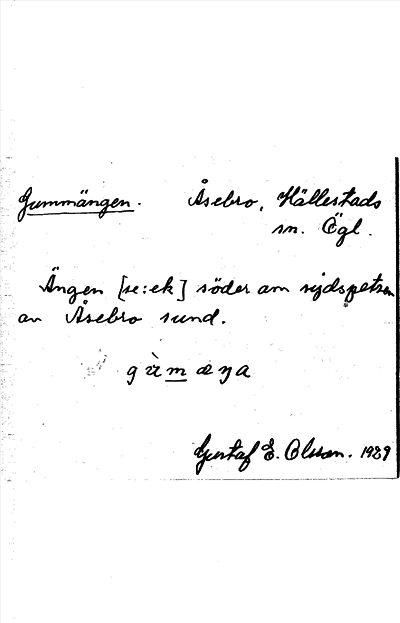 Gummängen. Åsebro, Hällestads
sn. Ögl.
Ängen [se: ek] söder om sydspetsen
av Åsebro sund.
Gustaf E. Olsson. 1929